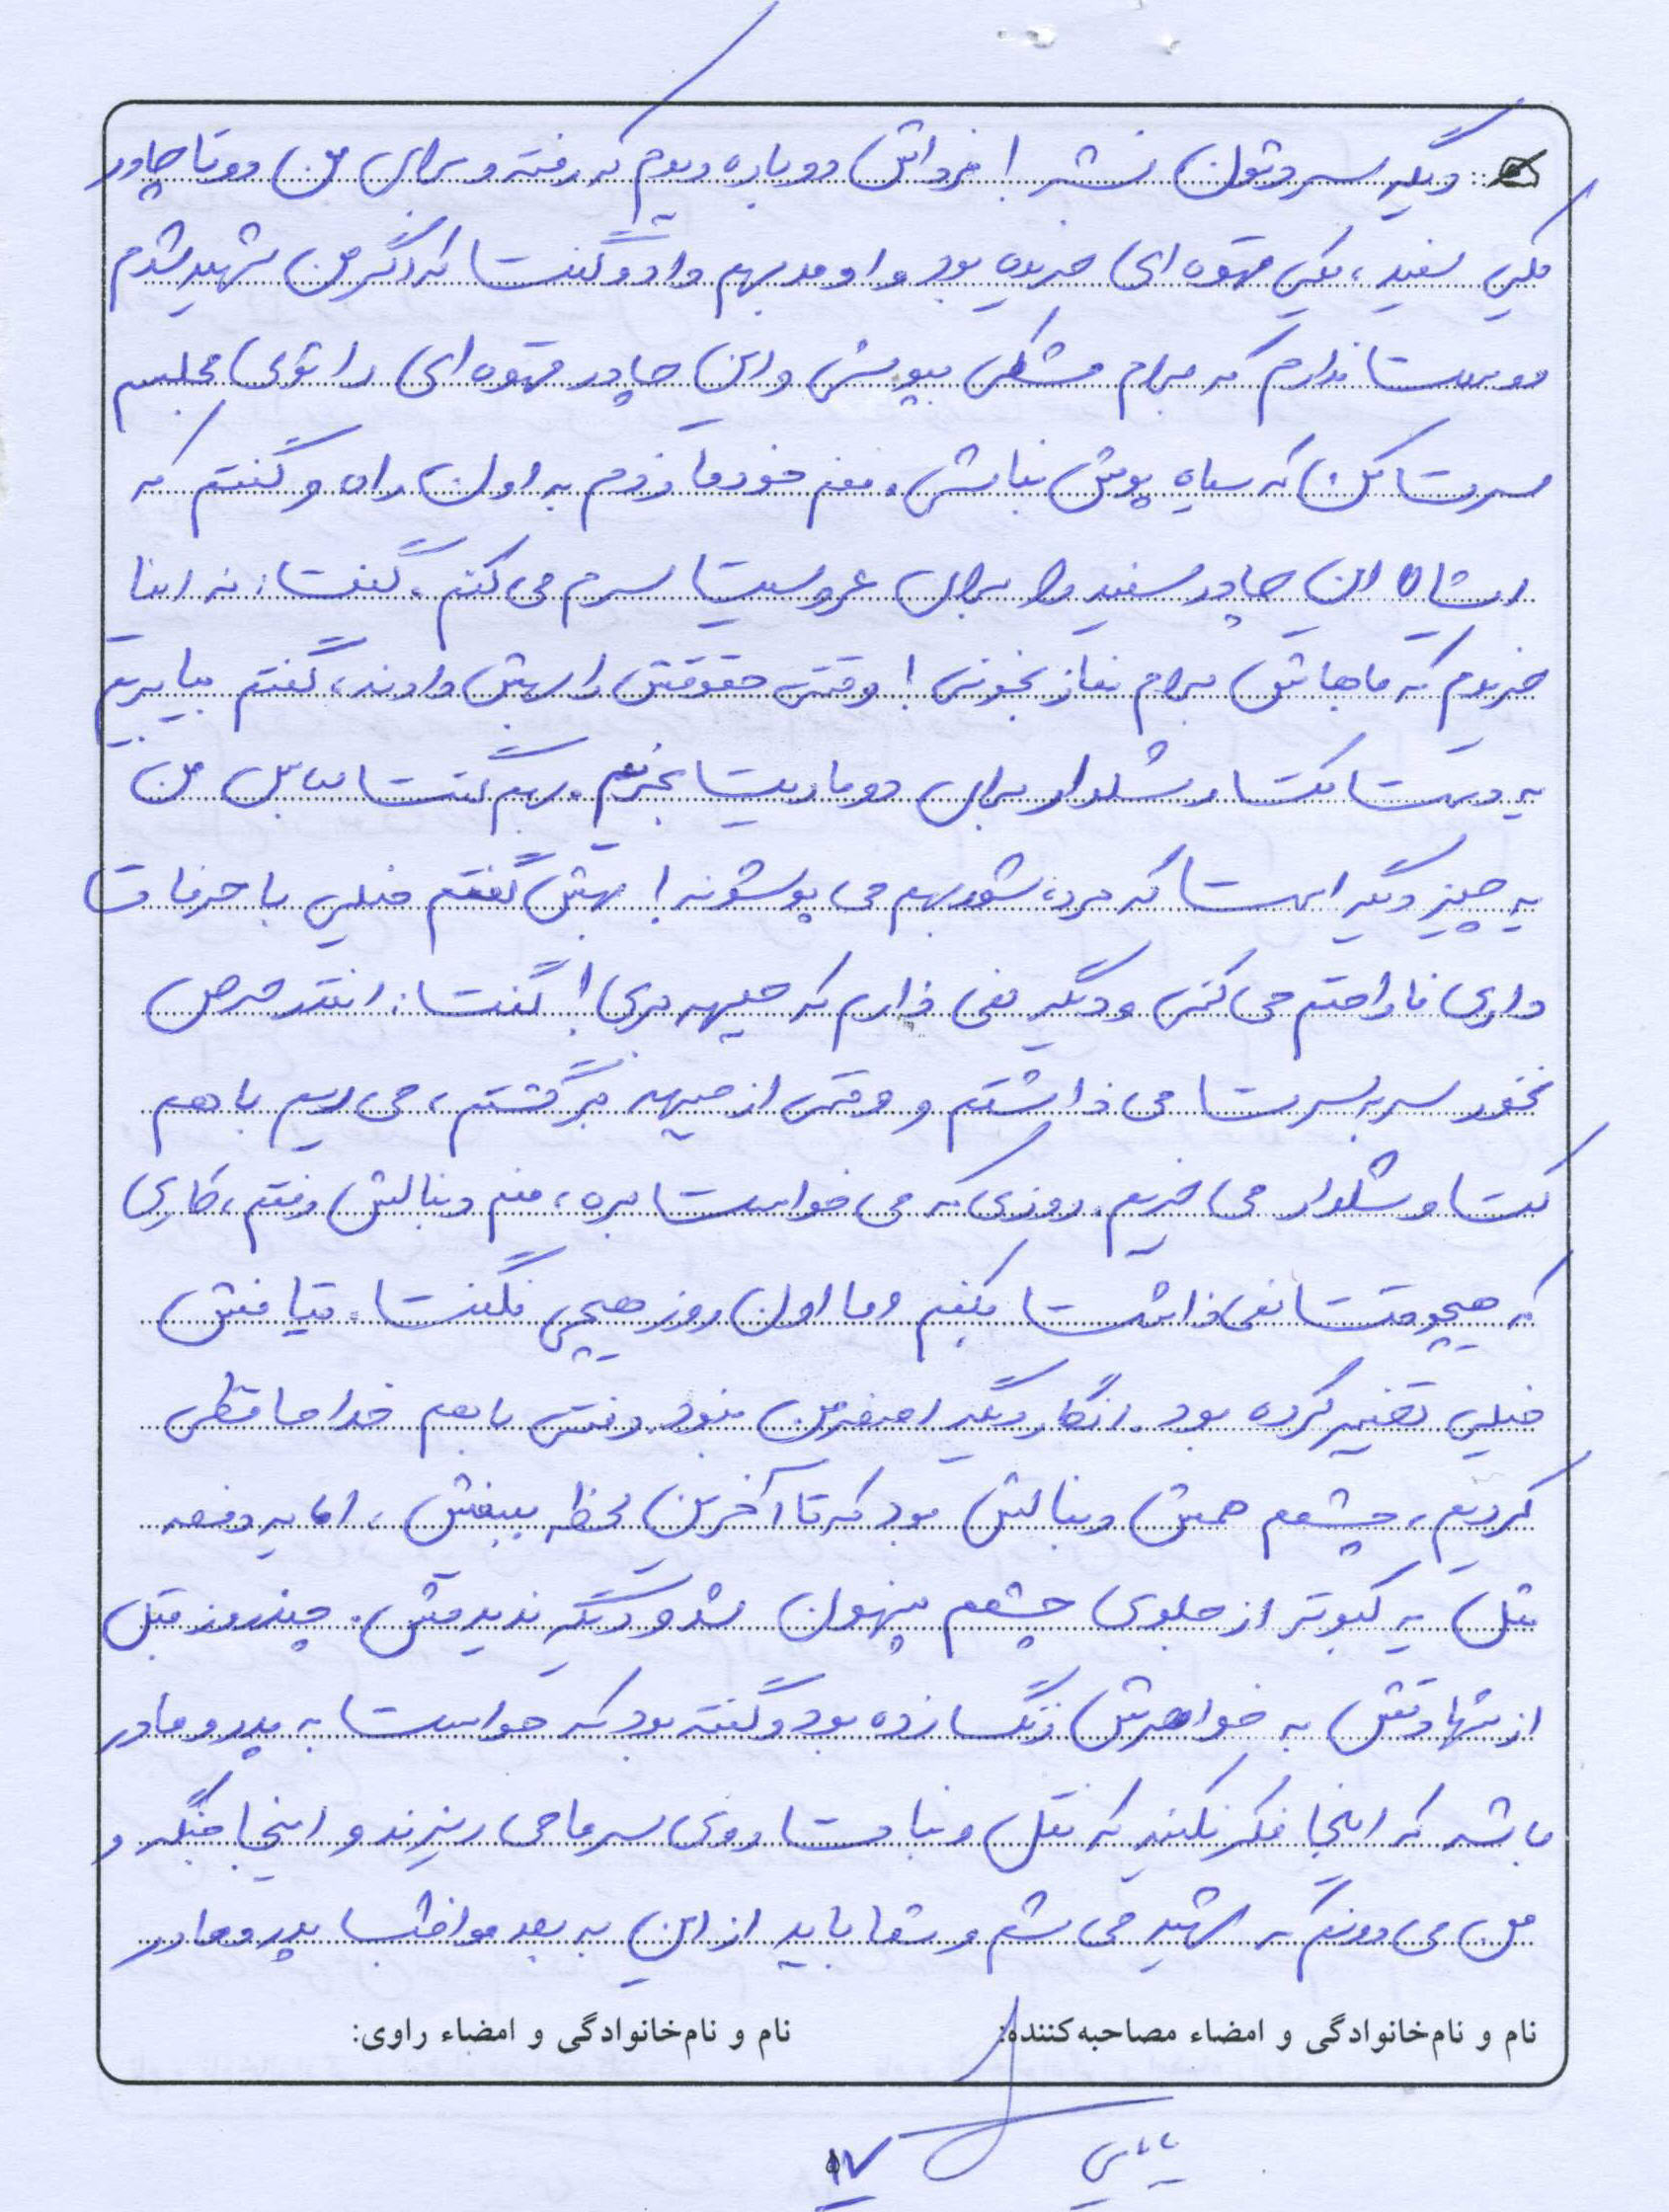 دیگر سردتون نشد! فرداش دوباره دیدم که رفته و برای من دو تا چادر
یکی سفید، یکی قهوه ای خریده بود و اومد بهم داد و گفت که اگر من شهید شدم
دوست ندارم که برام مشکی بپوشی و این چادر قهوه ای را توی مجلسم
سرت کن که سیاه پوش نباشی. منم خودما زدم به اون راه و گفتم که
ایشااله این چادر سفید را برای عروسیت سرم می کنم. گفت: نه اینا
خریدم که باهاش برام نماز بخونی! وقتی حقوقش را بهش دادند، گفتم بیا بریم
یه دست کت و شلوار برای دومادیت بخریم. بهم گفت لباس من
یه چیز دیگر است که مرده شور بهم می پوشونه! بهش گفتم خیلی با حرفات
داری ناراحتم می کنی و دیگر نمی ذارم که جبهه بری! گفت: انقدر حرص
نخور سر به سرت می ذاشتم و وقتی از جبهه برگشتم، می ریم با هم
کت و شلوار می خریم. روزی که می خواست بره، منم دنبالش رفتم، کاری
که هیچوقت نمی ذاشت بکنم و ما اون روز هیچی نگفت. قیافش
خیلی تغییر کرده بود. انگار دیگر اصغر من نبود. وقتی با هم خداحافظی
کردیم، چشمم همش دنبالش بود که تا آخرین لحظه ببینمش، اما یه دفعه
مثل یه کبوتر از جلوی چشمم پنهون شد و دیگه ندیدمش. چند روز قبل
از شهادتش به خواهرش زنگ زده بود و گفته بود که حواست به پدر و مادر
باشه که اینجا فکر نکنید که نقل و نبات روی سر ما می ریزند و اینجا جنگه و
من می دونم که شهید می شم و شما باید از این به بعد مواظب پدر و مادر
نام و نام‌خانوادگی و امضاء مصاحبه‌کننده: نام و نام‌خانوادگی و امضاء راوی:
۱۷